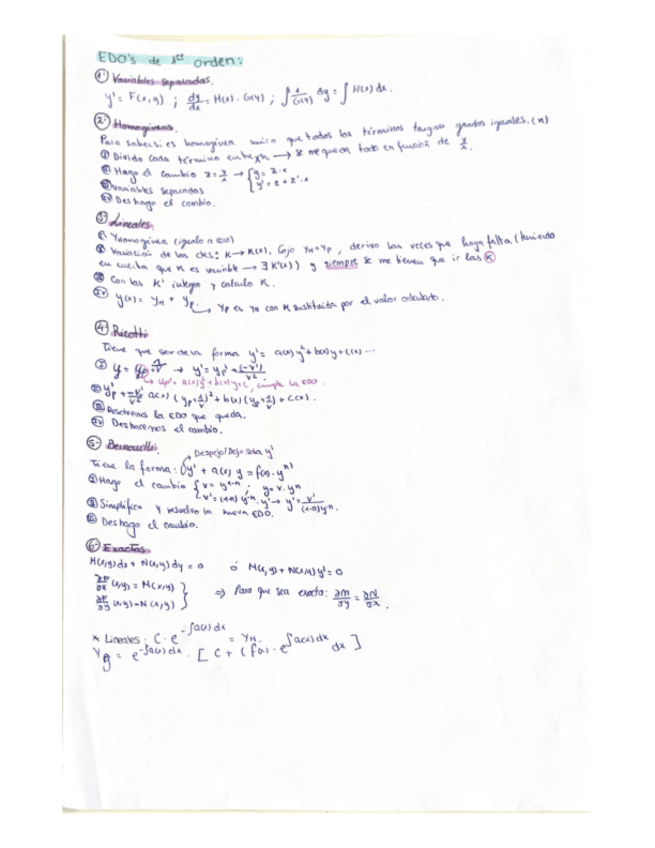 EDO's de 1er orden:
1º Variables separadas.
y' = F(x,y) ; dy/dx = H(x) · G(y) ; ∫ 1/G(y) dy = ∫ H(x) dx.
2º Homogéneas.
Para saber si es homogénea miro que todos los términos tengan grados iguales. (n)
① Divido cada término entre xⁿ → me queda todo en función de y/x.
② Hago el cambio z = y/x → { y = z·x
y' = z + z'·x
③ Variables separadas
④ Deshago el cambio.
3º Lineales.
① y Homogénea (igualo a cero)
② Variación de las ctes: K → K(x). Cojo yH = yP, derivo las veces que haga falta (teniendo
en cuenta que K es variable → ∃ K'(x)) y siempre se me tienen que ir las K
③ Con las K' integro y calculo K.
④ y(x) = yH + yP.
→ yP es yH con K sustituida por el valor calculado.
4º Ricatti
Tiene que ser de la forma y' = a(x) y² + b(x) y + c(x) ...
① y = yp + 1/v → y' = yp' + (-v')/v².
→ yp' = a(x)y² + b(x)y + c, cumple la EDO.
② y'p + -v'/v² a(x) (yp + 1/v)² + b(x) (yp + 1/v) + c(x).
③ Resolvemos la EDO que queda.
④ Deshacemos el cambio.
5º Bernouelli.
Despejo/Dejo sola y'
Tiene la forma: y' + a(x) y = f(x) · yⁿ
① Hago el cambio { v = y^(1-n) ; y = v · yⁿ
v' = (1-n) y^(-n) · y' → y' = v'/((1-n) y^(-n)).
② Simplifico y resuelvo la nueva EDO.
③ Deshago el cambio.
6º Exactas
M(x,y) dx + N(x,y) dy = 0 ó M(x,y) + N(x,y) y' = 0
∂F/∂x (x,y) = M(x,y)
∂F/∂y (x,y) = N(x,y) } ⇒ Para que sea exacta: ∂M/∂y = ∂N/∂x.
* Lineales: C · e^(-∫a(x)dx) = yH.
yg = e^(-∫a(x)dx) · [ C + ∫ f(x) · e^(∫a(x)dx) dx ]